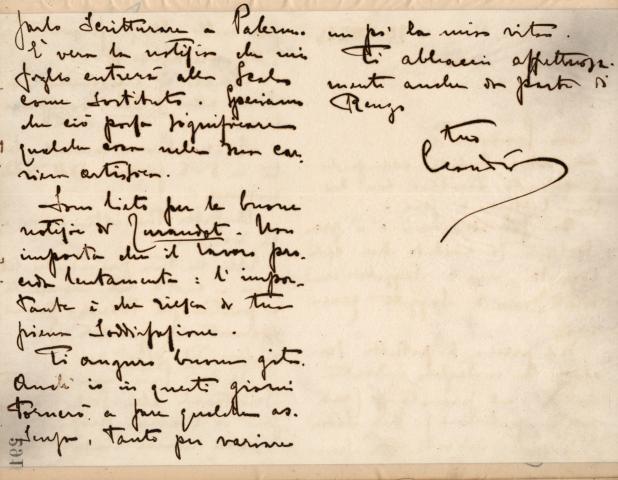 farlo scritturare a Palermo.
È vera la notizia che mio
figlio entrerà alla Scala
come sostituto. Speriamo
che ciò possa significare
qualche cosa nella sua car-
riera artistica.
Sono lieto per le buone
notizie di Turandot. Non
importa che il lavoro pro-
ceda lentamente: l'impor-
tante è che riesca di tua
piena soddisfazione.
Ti auguro buona gita.
Anch'io in questi giorni
tornerò a fare qualche as-
senza, tanto per variare
un po' la mia vita.
Ti abbraccio affettuosa-
mente anche da parte di
Renzo
tuo